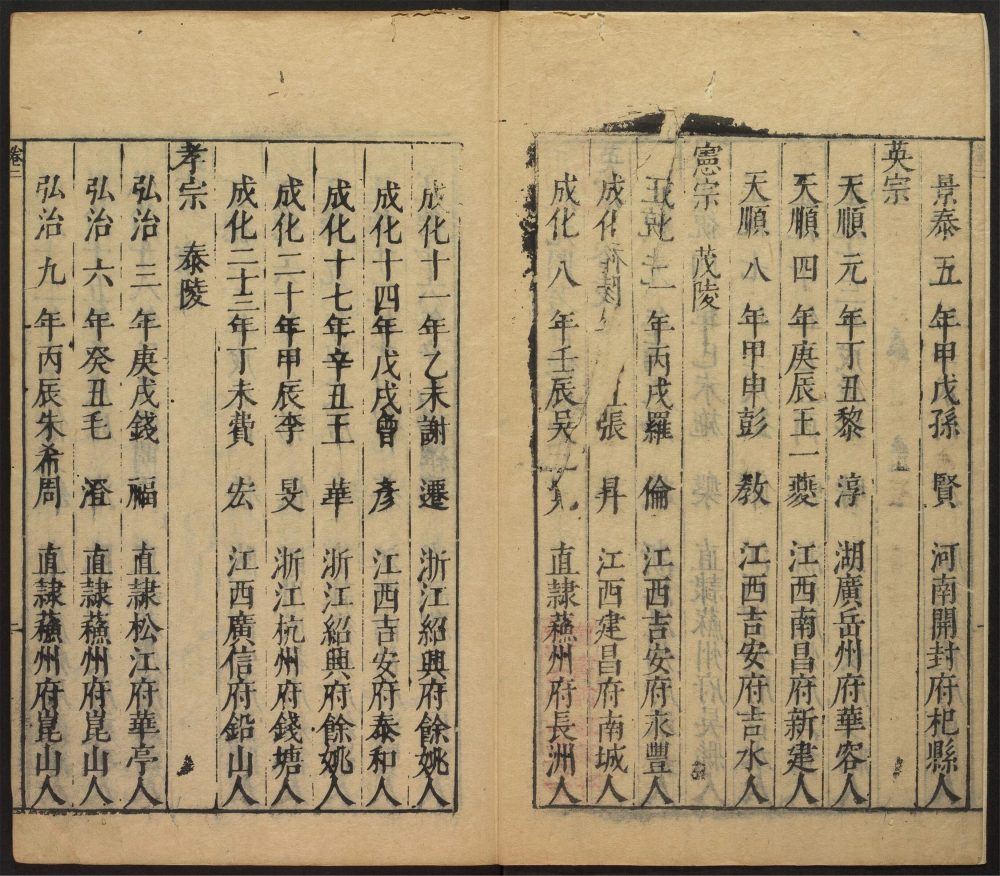 景泰五年甲戌孫賢 河南開封府杞縣人
英宗
天順元年丁丑黎淳 湖廣岳州府華容人
天順四年庚辰王一夔 江西南昌府新建人
天順八年甲申彭教 江西吉安府吉水人
憲宗 茂陵
成化二年丙戌羅倫 江西吉安府永豐人
成化 年 張昇 江西建昌府南城人
成化八年壬辰吳 直隸蘇州府長洲人
成化十一年乙未謝遷 浙江紹興府餘姚人
成化十四年戊戌曾彥 江西吉安府泰和人
成化十七年辛丑王華 浙江紹興府餘姚人
成化二十年甲辰李旻 浙江杭州府錢塘人
成化二十三年丁未費宏 江西廣信府鉛山人
孝宗 泰陵
弘治三年庚戌錢福 直隸松江府華亭人
弘治六年癸丑毛澄 直隸蘇州府崑山人
弘治九年丙辰朱希周 直隸蘇州府崑山人
卷二